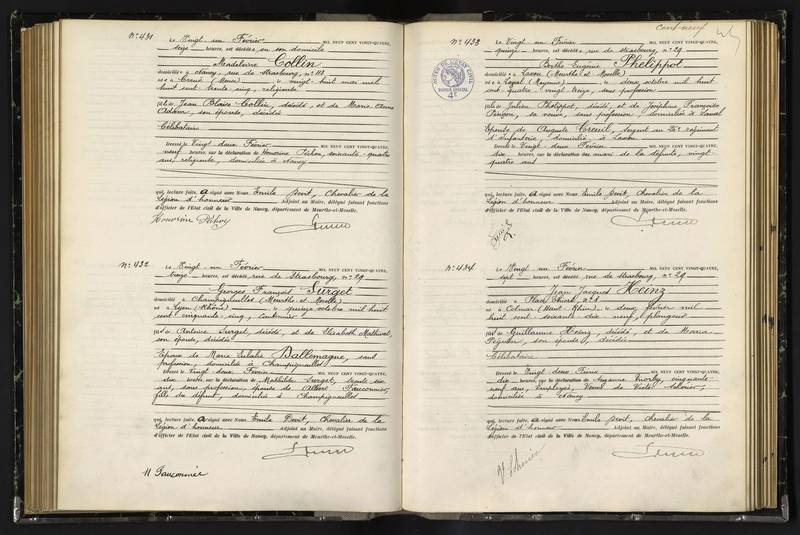 N° 431
Le Vingt un Février MIL NEUF CENT VINGT-QUATRE,
seize heures, est décédée en son domicile
Madeleine Collin
domiciliée à Nancy, rue de Strasbourg, n° 113
née à Creuë (Meuse) le vingt huit mai mil
huit cent trente cinq, religieuse
fille de Jean Blaise Collin, décédé, et de Marie Anne
Adam, son épouse, décédée
Célibataire
Dressé le Vingt deux Février
neuf heures, sur la déclaration de Honorine Péchoy, soixante quatre
ans, religieuse, domiciliée à Nancy
qui, lecture faite, a signé avec Nous Emile Devit, Chevalier de la
Légion d'honneur Adjoint au Maire, délégué faisant fonctions
d'officier de l'Etat civil de la Ville de Nancy, département de Meurthe-et-Moselle.
Honorine Péchoy
N° 432
Le Vingt un Février MIL NEUF CENT VINGT-QUATRE,
treize heures, est décédé, rue de Strasbourg, n° 29
Georges François Surget
domicilié à Champigneulles (Meurthe et Moselle)
né à Lyon (Rhône) le quinze octobre mil huit
cent cinquante cinq, cantonnier
fils de Antoine Surget, décédé, et de Elisabeth
son épouse, décédée
Epoux de Marie Eulalie Dallemagne, sans
profession, domiciliée à Champigneulles
Dressé le Vingt deux Février
dix heures, sur la déclaration de Mathilde Surget, trente six
ans, sans profession, épouse de Albert Fauconnier,
fille du défunt, domiciliée à Champigneulles
qui, lecture faite, a signé avec Nous Emile Devit, Chevalier de la
Légion d'honneur Adjoint au Maire, délégué faisant fonctions
d'officier de l'Etat civil de la Ville de Nancy, département de Meurthe-et-Moselle.
M Fauconnier
cent neuf
N° 433
Le Vingt un Février MIL NEUF CENT VINGT-QUATRE,
quinze heures, est décédée rue de Strasbourg, n° 29
Berthe Eugénie Phelippot
domiciliée à Laxou (Meurthe et Moselle)
née à Laval (Mayenne) le deux octobre mil huit
cent quatre vingt treize, sans profession
fille de Julien Phelippot, décédé, et de Joséphine Françoise
sa veuve, sans profession, domiciliée à Laval
Epouse de Auguste Creuil, sergent au 26e régiment
d'Infanterie, domicilié à Laxou
Dressé le Vingt deux Février
dix heures, sur la déclaration du mari de la défunte, vingt
quatre ans
qui, lecture faite, a signé avec Nous Emile Devit, Chevalier de la
Légion d'honneur Adjoint au Maire, délégué faisant fonctions
d'officier de l'Etat civil de la Ville de Nancy, département de Meurthe-et-Moselle.
N° 434
Le Vingt un Février MIL NEUF CENT VINGT-QUATRE,
sept heures, est décédé rue de Strasbourg, n° 29
Jean Jacques Heinz
domicilié à Place Thiers, n° 1
né à Colmar (Haut Rhin) le deux février mil
huit cent soixante dix neuf, plongeur
fils de Guillaume Heinz, décédé, et de Maria
son épouse, décédée
Célibataire
Dressé le Vingt deux Février
dix heures, sur la déclaration de Suzanne cinquante
neuf ans, employée, Veuve de
domiciliée à Nancy
qui, lecture faite, a signé avec Nous Emile Devit, Chevalier de la
Légion d'honneur Adjoint au Maire, délégué faisant fonctions
d'officier de l'Etat civil de la Ville de Nancy, département de Meurthe-et-Moselle.